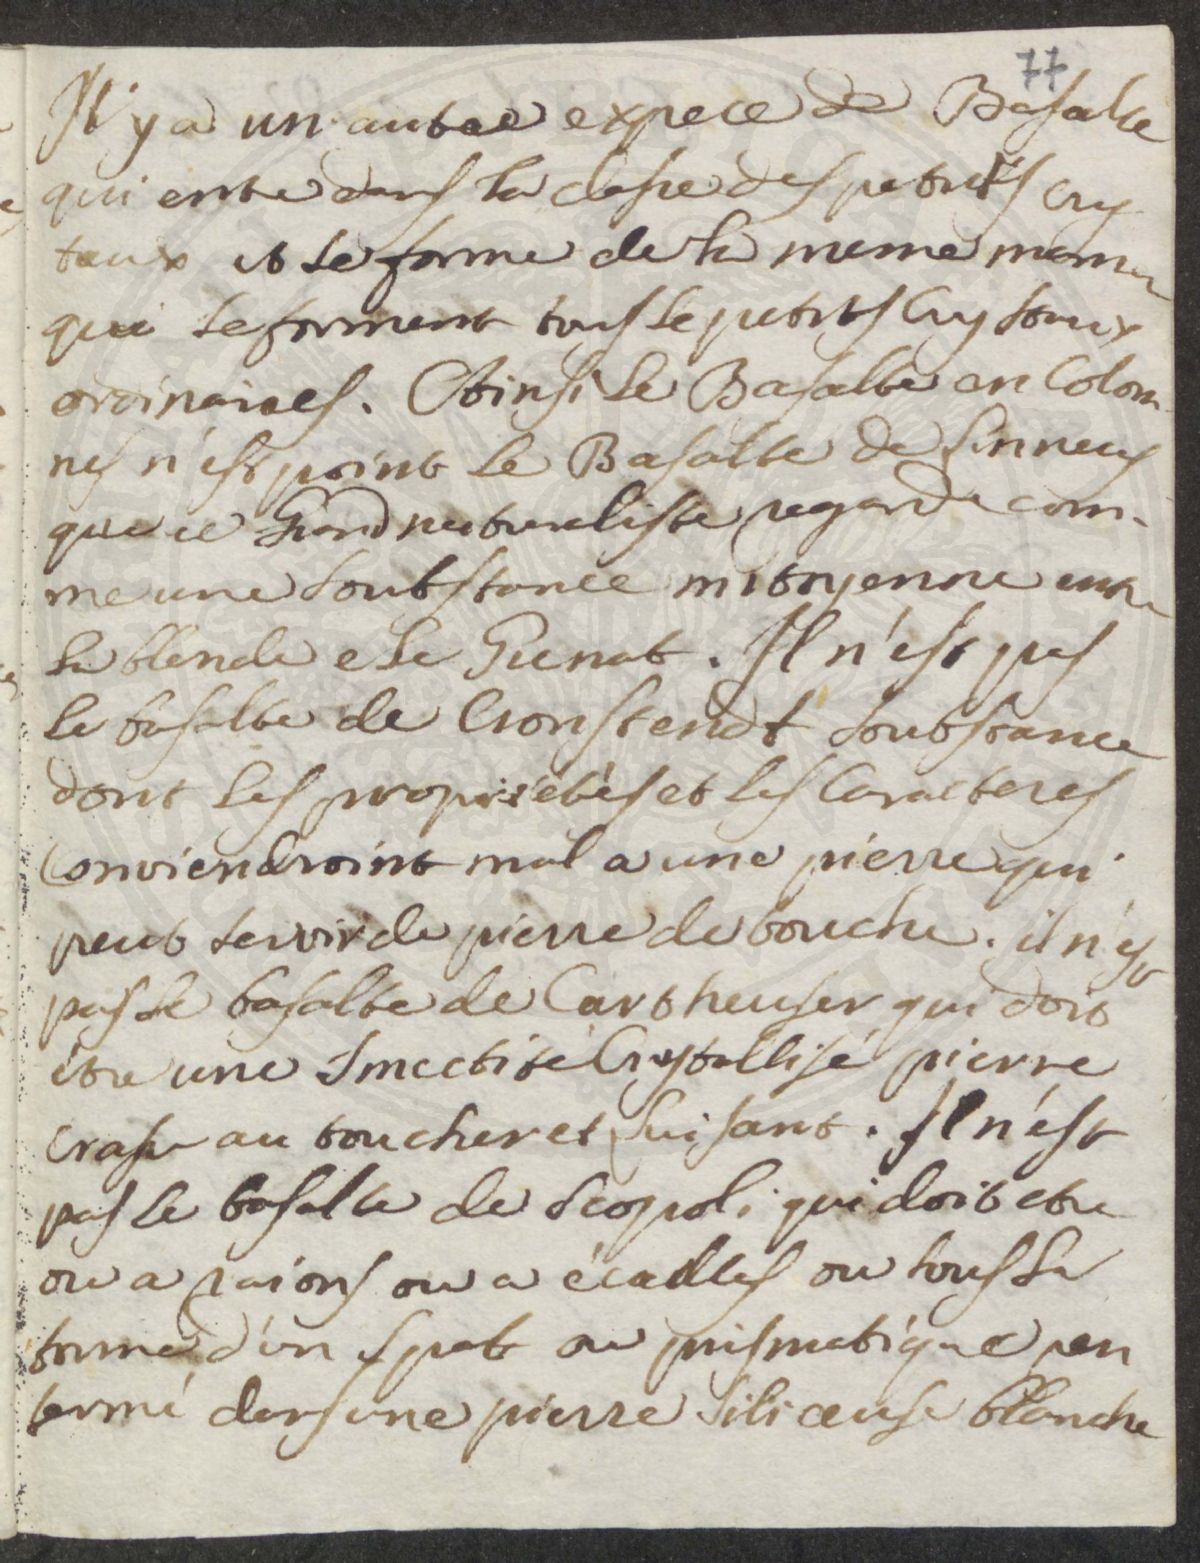 77
Il y a un autre expece de Basalte
qui entre dans la classe des petits Cry
taux et se forme de la meme manier
que se forment tous le petits Crystaux
ordinaires. Ainsi le Basalte en Colom
nes n'est point le Basalte de Linneus
que ce Grand naturaliste regarde com-
me une soubstance mitoyenne entre
la blende e le Grenat. Il n'est pas
le basalte de Cronstendt soubstance
dont les proprietés et les Caracteres
Conviendroint mal a une pierre qui
peut servir de pierre de touche. il n'est
pas le basalte de Cartheuser qui doit
etre une Smectite Crystallisé pierre
crasse au toucher et luisant. Il n'est
pas le basalte de Scopoli qui doit etre
ou a raions ou a écailles ou sous la
forme d'un spat ou prismatique ren
fermé dans une pierre siliceuse blanche